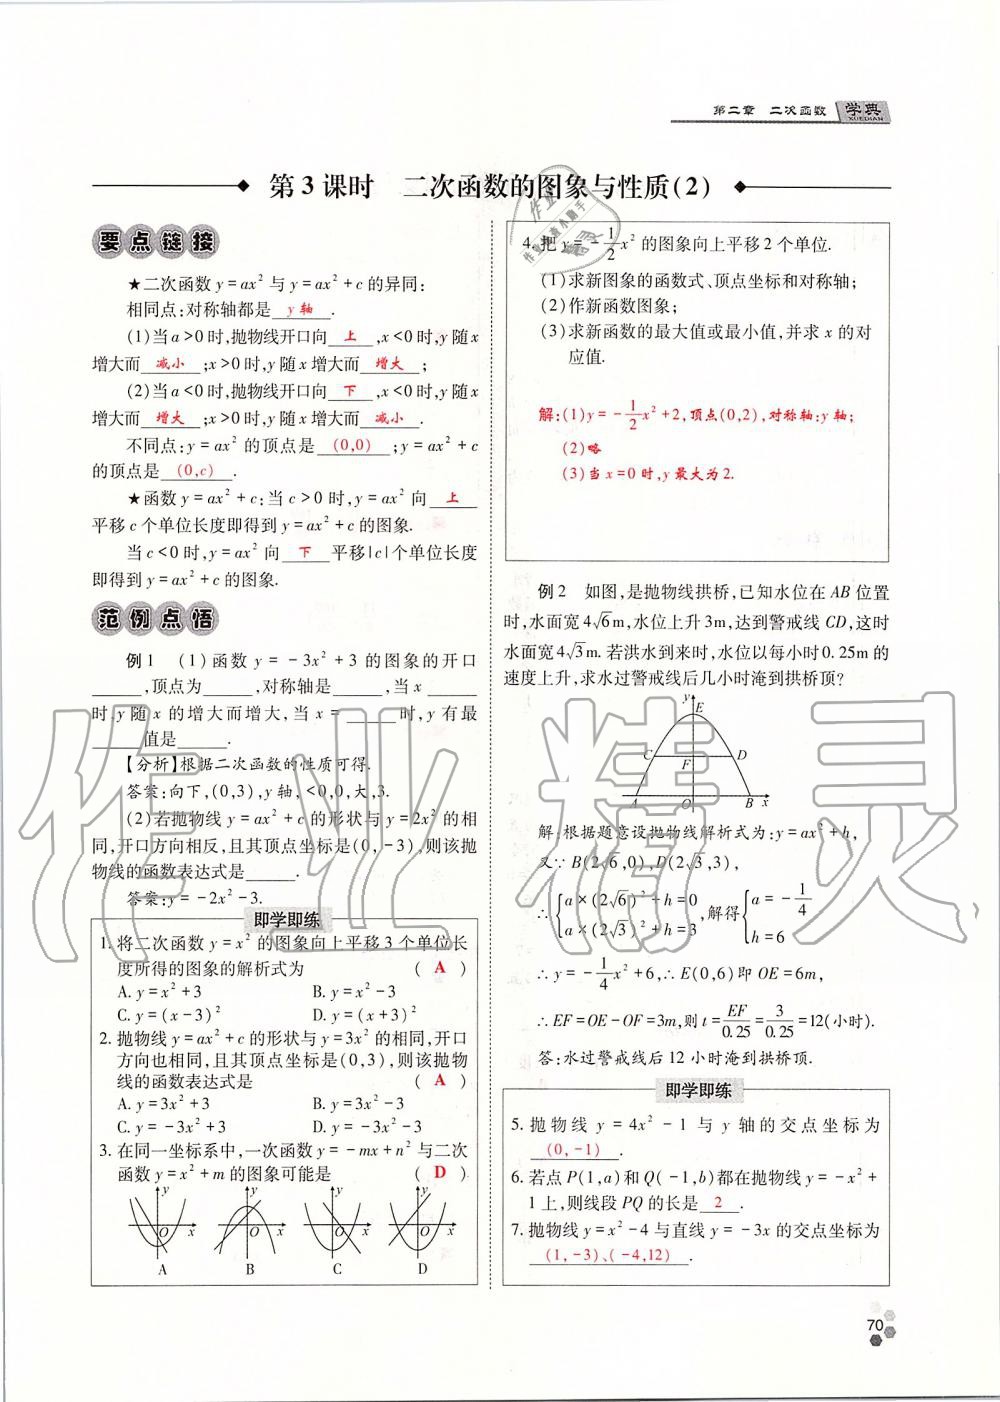 第二章 二次函数 学典
XUEDIAN
第3课时 二次函数的图象与性质(2)
要点链接
★二次函数 y=ax²与 y=ax²+c 的异同:
相同点:对称轴都是 y轴 .
(1)当 a>0 时,抛物线开口向 上 ,x<0 时,y 随 x
增大而 减小 ;x>0 时,y 随 x 增大而 增大 ;
(2)当 a<0 时,抛物线开口向 下 ,x<0 时,y 随 x
增大而 增大 ;x>0 时,y 随 x 增大而 减小 .
不同点:y=ax² 的顶点是 (0,0) ;y=ax²+c
的顶点是 (0,c) .
★函数 y=ax²+c:当 c>0 时,y=ax² 向 上
平移 c 个单位长度即得到 y=ax²+c 的图象.
当 c<0 时,y=ax² 向 下 平移|c|个单位长度
即得到 y=ax²+c 的图象.
范例点悟
例1 (1)函数 y=-3x²+3 的图象的开口
______,顶点为______,对称轴是______,当 x ______
时,y 随 x 的增大而增大,当 x=______时,y 有最
______值是______.
【分析】根据二次函数的性质可得.
答案:向下,(0,3),y 轴,<0,0,大,3.
(2)若抛物线 y=ax²+c 的形状与 y=2x² 的相
同,开口方向相反,且其顶点坐标是(0,-3),则该抛
物线的函数表达式是______.
答案:y=-2x²-3.
即学即练
1. 将二次函数 y=x² 的图象向上平移 3 个单位长
度所得的图象的解析式为 ( A )
A. y=x²+3 B. y=x²-3
C. y=(x-3)² D. y=(x+3)²
2. 抛物线 y=ax²+c 的形状与 y=3x² 的相同,开口
方向也相同,且其顶点坐标是(0,3),则该抛物
线的函数表达式是 ( A )
A. y=3x²+3 B. y=3x²-3
C. y=-3x²+3 D. y=-3x²-3
3. 在同一坐标系中,一次函数 y=-mx+n² 与二次
函数 y=x²+m 的图象可能是 ( D )
y y y y
O x O x O x O x
A B C D
4. 把 y=-1/2x² 的图象向上平移 2 个单位.
(1)求新图象的函数式、顶点坐标和对称轴;
(2)作新函数图象;
(3)求新函数的最大值或最小值,并求 x 的对
应值.
解:(1)y=-1/2x²+2,顶点(0,2),对称轴:y轴;
(2)略
(3)当 x=0 时,y最大为2.
例2 如图,是抛物线拱桥,已知水位在 AB 位置
时,水面宽4√6m,水位上升3m,达到警戒线 CD,这时
水面宽4√3m. 若洪水到来时,水位以每小时0.25m的
速度上升,求水过警戒线后几小时淹到拱桥顶?
y E
C F D
A O B x
解:根据题意设抛物线解析式为:y=ax²+h,
又∵B(2√6,0),D(2√3,3),
∴{a×(2√6)²+h=0 a×(2√3)²+h=3,解得{a=-1/4 h=6
∴y=-1/4x²+6,∴E(0,6)即 OE=6m,
∴EF=OE-OF=3m,则 t=EF/0.25=3/0.25=12(小时).
答:水过警戒线后 12 小时淹到拱桥顶.
即学即练
5. 抛物线 y=4x²-1 与 y 轴的交点坐标为
(0,-1) .
6. 若点 P(1,a)和 Q(-1,b)都在抛物线 y=-x²+
1 上,则线段 PQ 的长是 2 .
7. 抛物线 y=x²-4 与直线 y=-3x 的交点坐标为
(1,-3)、(-4,12) .
70
作业精灵